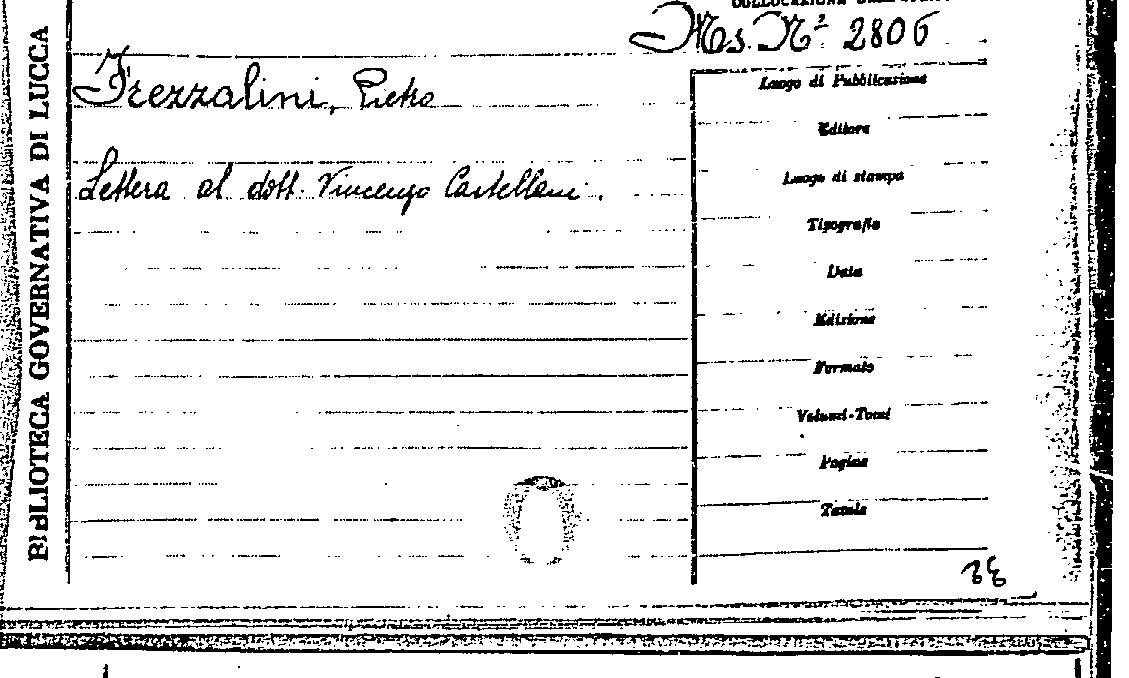 Ms. Nº 2806
Frezzalini, Pietro
Lettera al dott. Vincenzo Castellani.
BIBLIOTECA GOVERNATIVA DI LUCCA
Luogo di Pubblicazione
Editore
Luogo di stampa
Tipografia
Data
Edizione
Formato
Volumi-Tomi
Pagine
Tavole